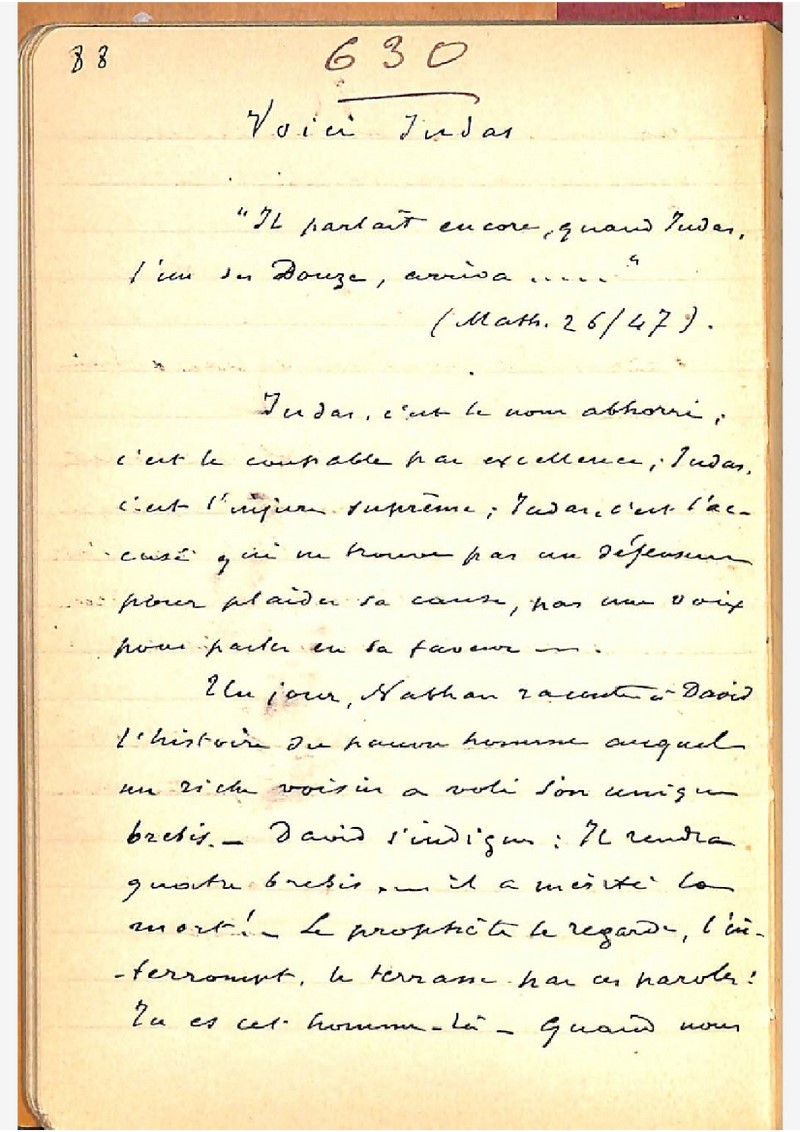 88
630
Voici Judas
"Il parlait encore, quand Judas,
l'un des Douze, arriva ....."
(Math. 26/47).
Judas, c'est le nom abhorré ;
c'est le coupable par excellence ; Judas,
c'est l'injure suprême ; Judas, c'est l'ac-
cusé qui ne trouve pas un défenseur
pour plaider sa cause, pas une voix
pour parler en sa faveur —.
Un jour, Nathan raconte à David
l'histoire du pauvre homme auquel
un riche voisin a volé son unique
brebis. — David s'indigne : Il rendra
quatre brebis. — il a mérité la
mort ! — Le prophète le regarde, l'in-
-terrompt, le terrasse par ces paroles :
Tu es cet homme-là — Quand nous